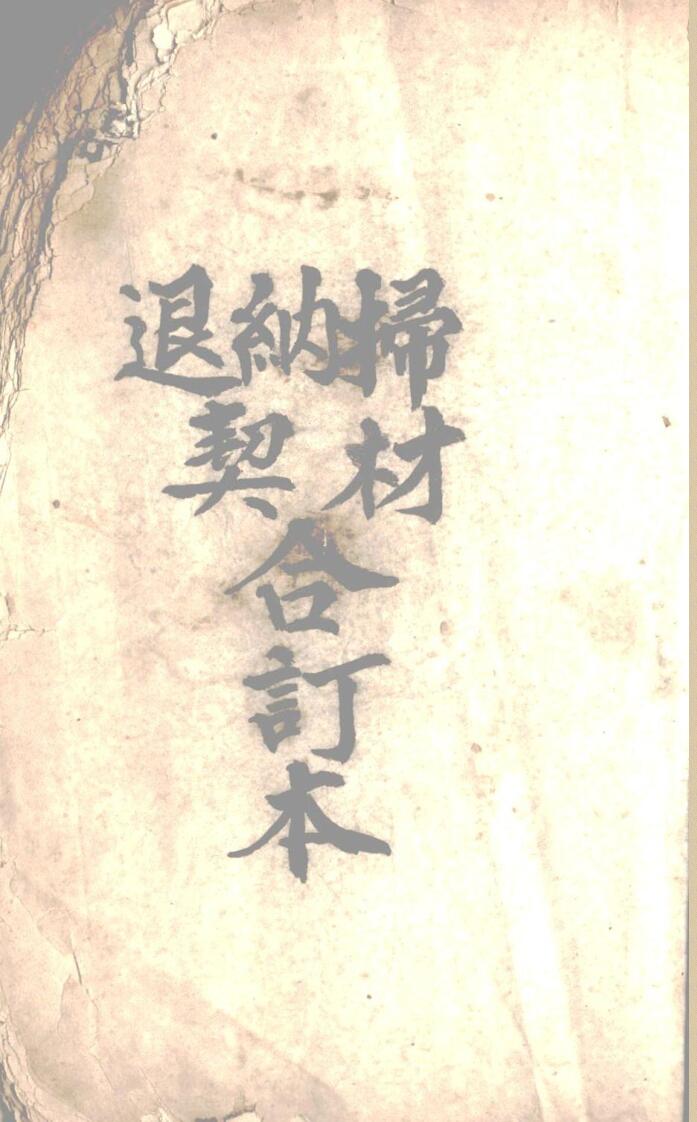 掃材
納
退契
合訂本